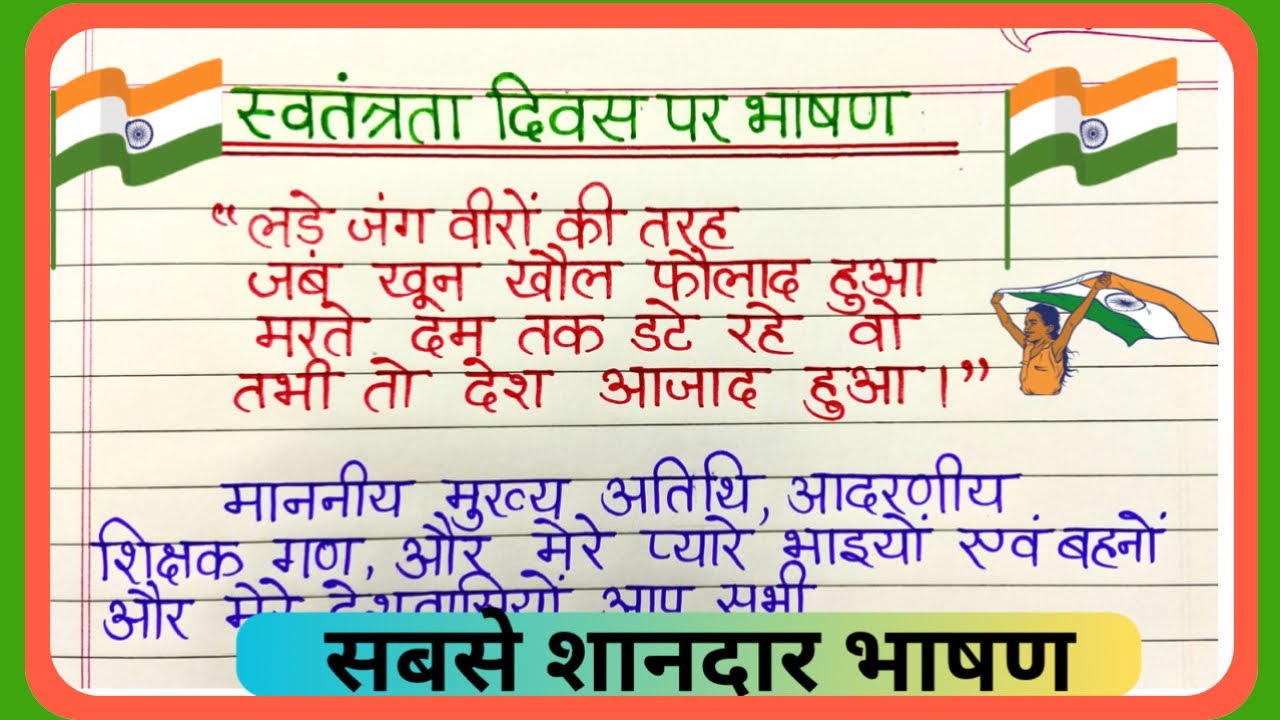 स्वतंत्रता दिवस पर भाषण
“लड़े जंग वीरों की तरह
जब खून खौल फौलाद हुआ
मरते दम तक डटे रहे वो
तभी तो देश आजाद हुआ।”
माननीय मुख्य अतिथि, आदरणीय
शिक्षक गण, और मेरे प्यारे भाइयों एवं बहनों
और मेरे देशवासियों आप सभी
सबसे शानदार भाषण